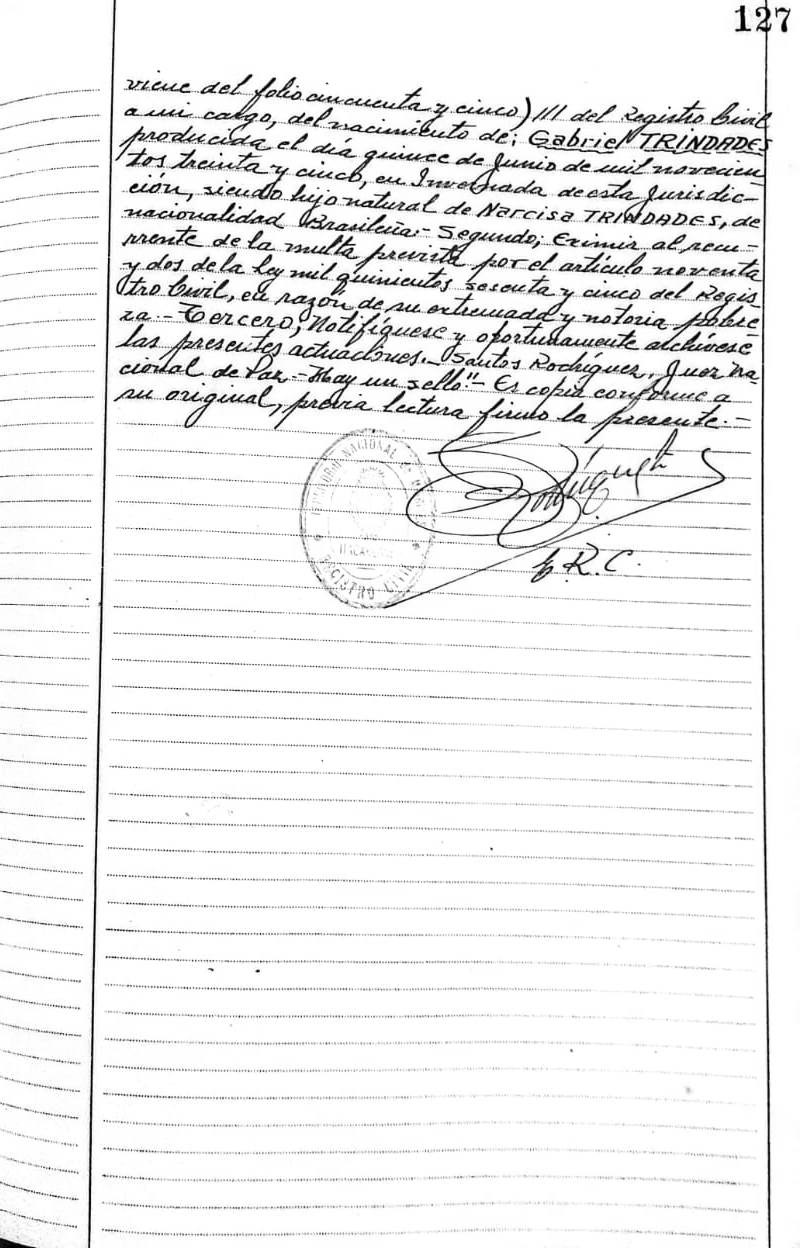 127
viene del folio cincuenta y cinco) /// del Registro Civil
a mi cargo, del nacimiento de; Gabriel TRINDADES
producida el día quince de Junio de mil novecien
tos treinta y cinco, en Invernada de esta Jurisdic-
ción, siendo hijo natural de Narcisa TRINDADES, de
nacionalidad Brasileña.- Segundo; Eximir al recu-
rrente de la multa prevista por el artículo noventa
y dos de la ley mil quinientos sesenta y cinco del Regis
tro Civil, en razón de su extremada y notoria pobre
za.- Tercero; Notifíquese y oportunamente archívese
las presentes actuaciones.- Santos Rodríguez, Juez Na-
cional de Paz.- Hay un sello".- Es copia conforme a
su original, previa lectura firmo la presente.-
NACIONAL
REGISTRO CIVIL
Rodríguez
E R. C.